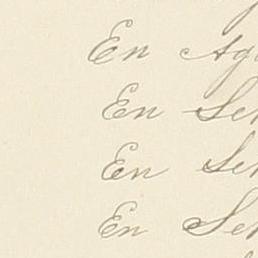 En Ag
En Se
En Se
En Se